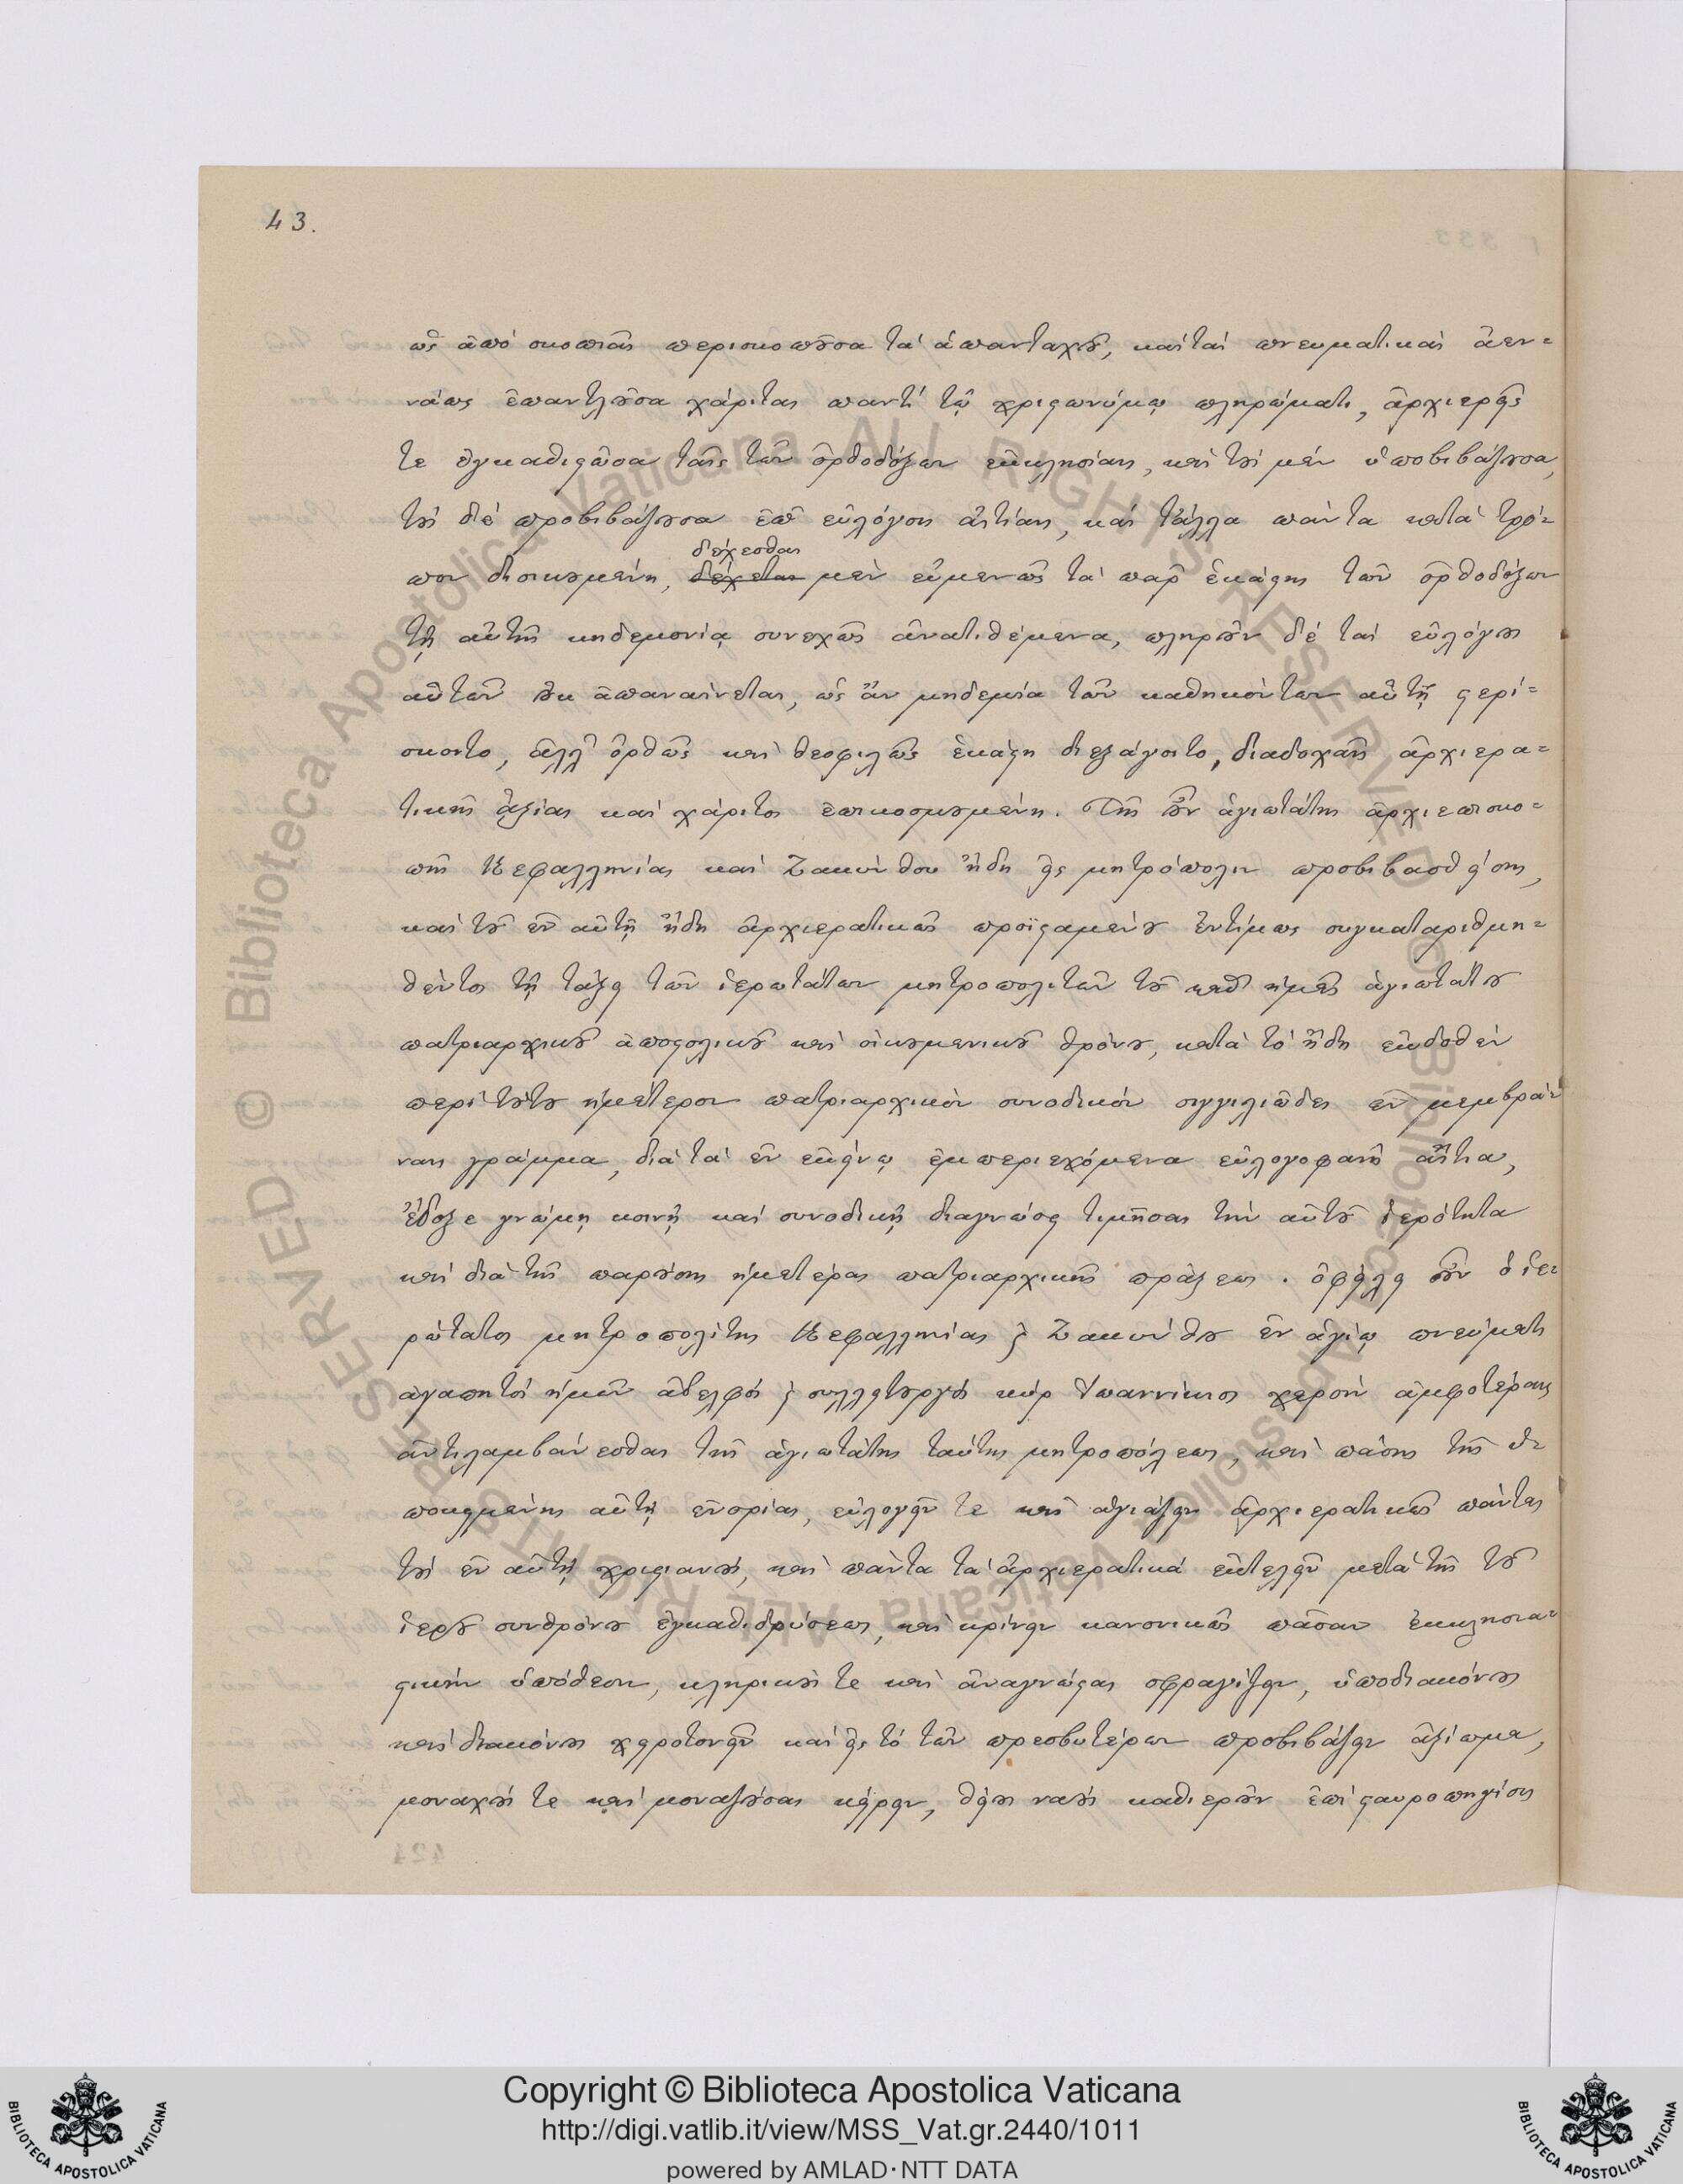 43.
ὡς ἀπό σκοπιᾶς περισκοποῦσα τά ἁπανταχοῦ, καί τάς πνευματικάς ἀεν=
νάως ἐπαντλοῦσα χάριτας παντί τῷ χριστωνύμῳ πληρώματι, ἀρχιερεῖς
τε ἐγκαθιστῶσα ταῖς τῶν ὀρθοδόξων ἐκκλησίαις, καί τούς μέν ὑποβιβάζουσα,
τούς δέ προβιβάζουσα ἐπ' εὐλόγοις αἰτίαις, καί τἄλλα πάντα κατά τρό=
δέχεσθαι
πον διοικουμένη, δέχεται μέν εὐμενῶς τά παρ' ἑκάστης τῶν ὀρθοδόξων
τῇ αὐτῆς κηδεμονίᾳ συνεχῶς ἀνατιθέμενα, πληροῦν δέ τάς εὐλόγους
αὐτῶν οὐκ ἀπαναίνεται, ὡς ἄν μηδεμία τῶν καθηκόντων αὐτῇ στερί=
σκοιτο, ἀλλ' ὀρθῶς καί θεοφιλῶς ἑκάστη διεξάγοιτο, διαδοχαῖς ἀρχιερα=
τικῆς ἀξίας καί χάριτος ἐπικοσμουμένη. Τῆς οὖν ἁγιωτάτης ἀρχιεπισκο=
πῆς Κεφαλληνίας καί Ζακύνθου ἤδη εἰς μητρόπολιν προβιβασθείσης,
καί τοῦ ἐν αὐτῇ ἤδη ἀρχιερατικῶς προϊσταμένου ἐντίμως συγκαταριθμη=
θέντος τῇ τάξει τῶν ἱερωτάτων μητροπολιτῶν τοῦ καθ' ἡμᾶς ἁγιωτάτου
πατριαρχικοῦ ἀποστολικοῦ καί οἰκουμενικοῦ θρόνου, κατά τό ἤδη ἐκδοθέν
περί τούτου ἡμέτερον πατριαρχικόν συνοδικόν σιγγιλιῶδες ἐν μεμβρά=
ναις γράμμα, διά τά ἐν ἐκείνῳ ἐμπεριεχόμενα εὐλογοφανῆ αἴτια,
ἔδοξε γνώμῃ κοινῇ καί συνοδικῇ διαγνώσει τιμῆσαι τήν αὐτοῦ ἱερότητα
καί διά τῆς παρούσης ἡμετέρας πατριαρχικῆς πράξεως. ὀφείλει οὖν ὁ ἱε=
ρώτατος μητροπολίτης Κεφαλληνίας καί Ζακύνθου ἐν ἁγίῳ πνεύματι
ἀγαπητός ἡμῶν ἀδελφός καί συλλειτουργός κύρ Ἰωαννίκιος χερσίν ἀμφοτέραις
ἀντιλαμβάνεσθαι τῆς ἁγιωτάτης ταύτης μητροπόλεως, καί πάσης τῆς ὑ=
ποκειμένης αὐτῇ ἐνορίας, εὐλογεῖν τε καί ἁγιάζειν ἀρχιερατικῶς πάντας
τούς ἐν αὐτῇ χριστιανούς, καί πάντα τά ἀρχιερατικά ἐκτελεῖν μετά τῆς τοῦ
ἱεροῦ συνθρόνου ἐγκαθιδρύσεως, καί κρίνειν κανονικῶς πᾶσαν ἐκκλησια=
στικήν ὑπόθεσιν, κληρικούς τε καί ἀναγνώστας σφραγίζειν, ὑποδιακόνους
καί διακόνους χειροτονεῖν καί εἰς τό τῶν πρεσβυτέρων προβιβάζειν ἀξίωμα,
μοναχούς τε καί μοναζούσας κείρειν, θείους ναούς καθιεροῦν ἐπί σταυροπηγίοις